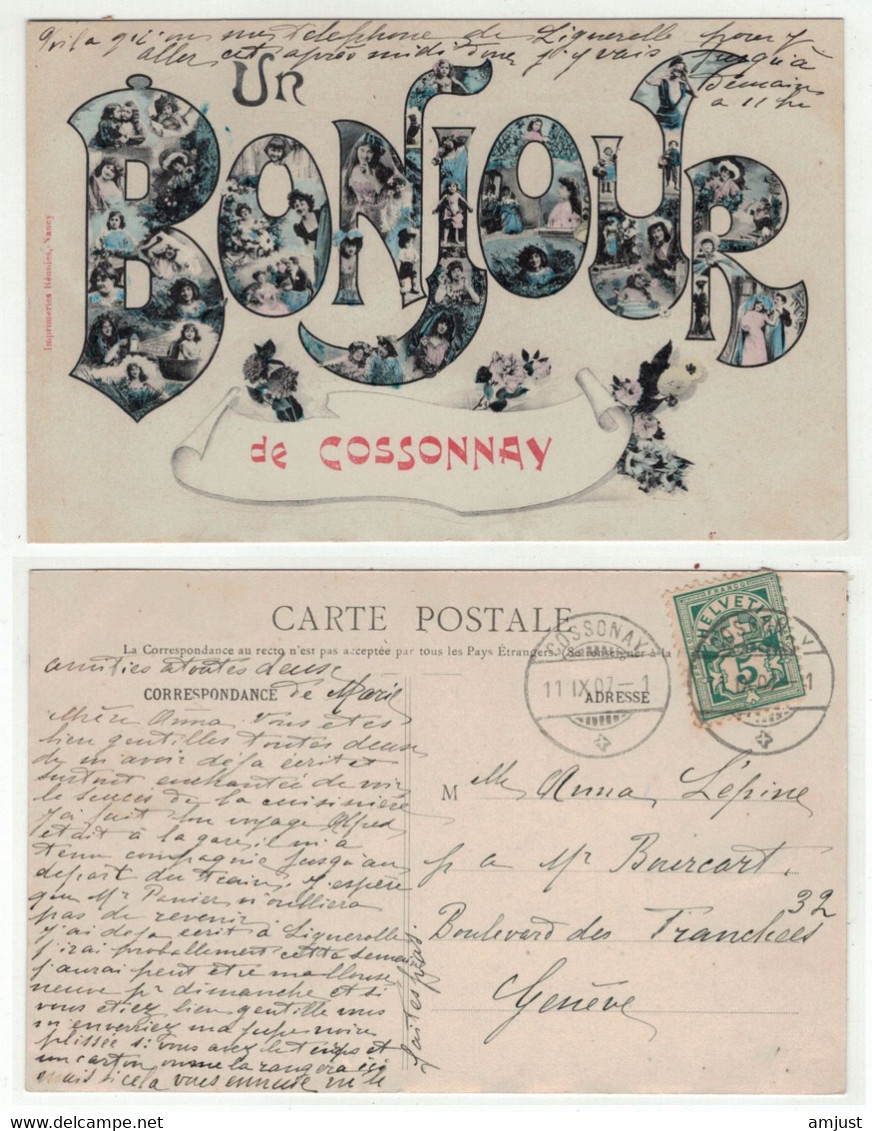 Voila qu'on me telephone de Lignerolle pour y
aller cet après midi donc j'y vais jusqu'à
demain
a 11 h
Un
BONJOUR
de COSSONNAY
Imprimeries Réunies, Nancy
CARTE POSTALE
La Correspondance au recto n'est pas acceptée par tous les Pays Étrangers. (Se renseigner à la
amitiés a toutes deux
CORRESPONDANCE de Marie
ADRESSE
COSSONAY
11.IX.07.-1
HELVETIA
FRANCO
5
Chère Anna. Vous etes
bien gentilles toutes deux
de m'avoir déja écrit et
surtout enchantée de voir
le succès de la cuisinière
J'ai fait bon voyage Alfred
était à la gare, il m'a
tenu compagnie jusqu'au
depart du train. J'espère
que Mr Panier n'oubliera
pas de revenir
J'ai deja ecrit à Lignerolle
j'irai probablement cette semaine
j'aurai peut etre ma blouse
neuve pr dimanche et si
vous etiez bien gentille vous
m'enverriez ma jupe noire
plissée si vous avez le temps et
un carton ou me la ranger ici
mais si cela vous ennuie ne le
faites pas.
M elle Anna Lépine
p a Mr Bourcart
32
Boulevard des Tranchées
Genève
amjust